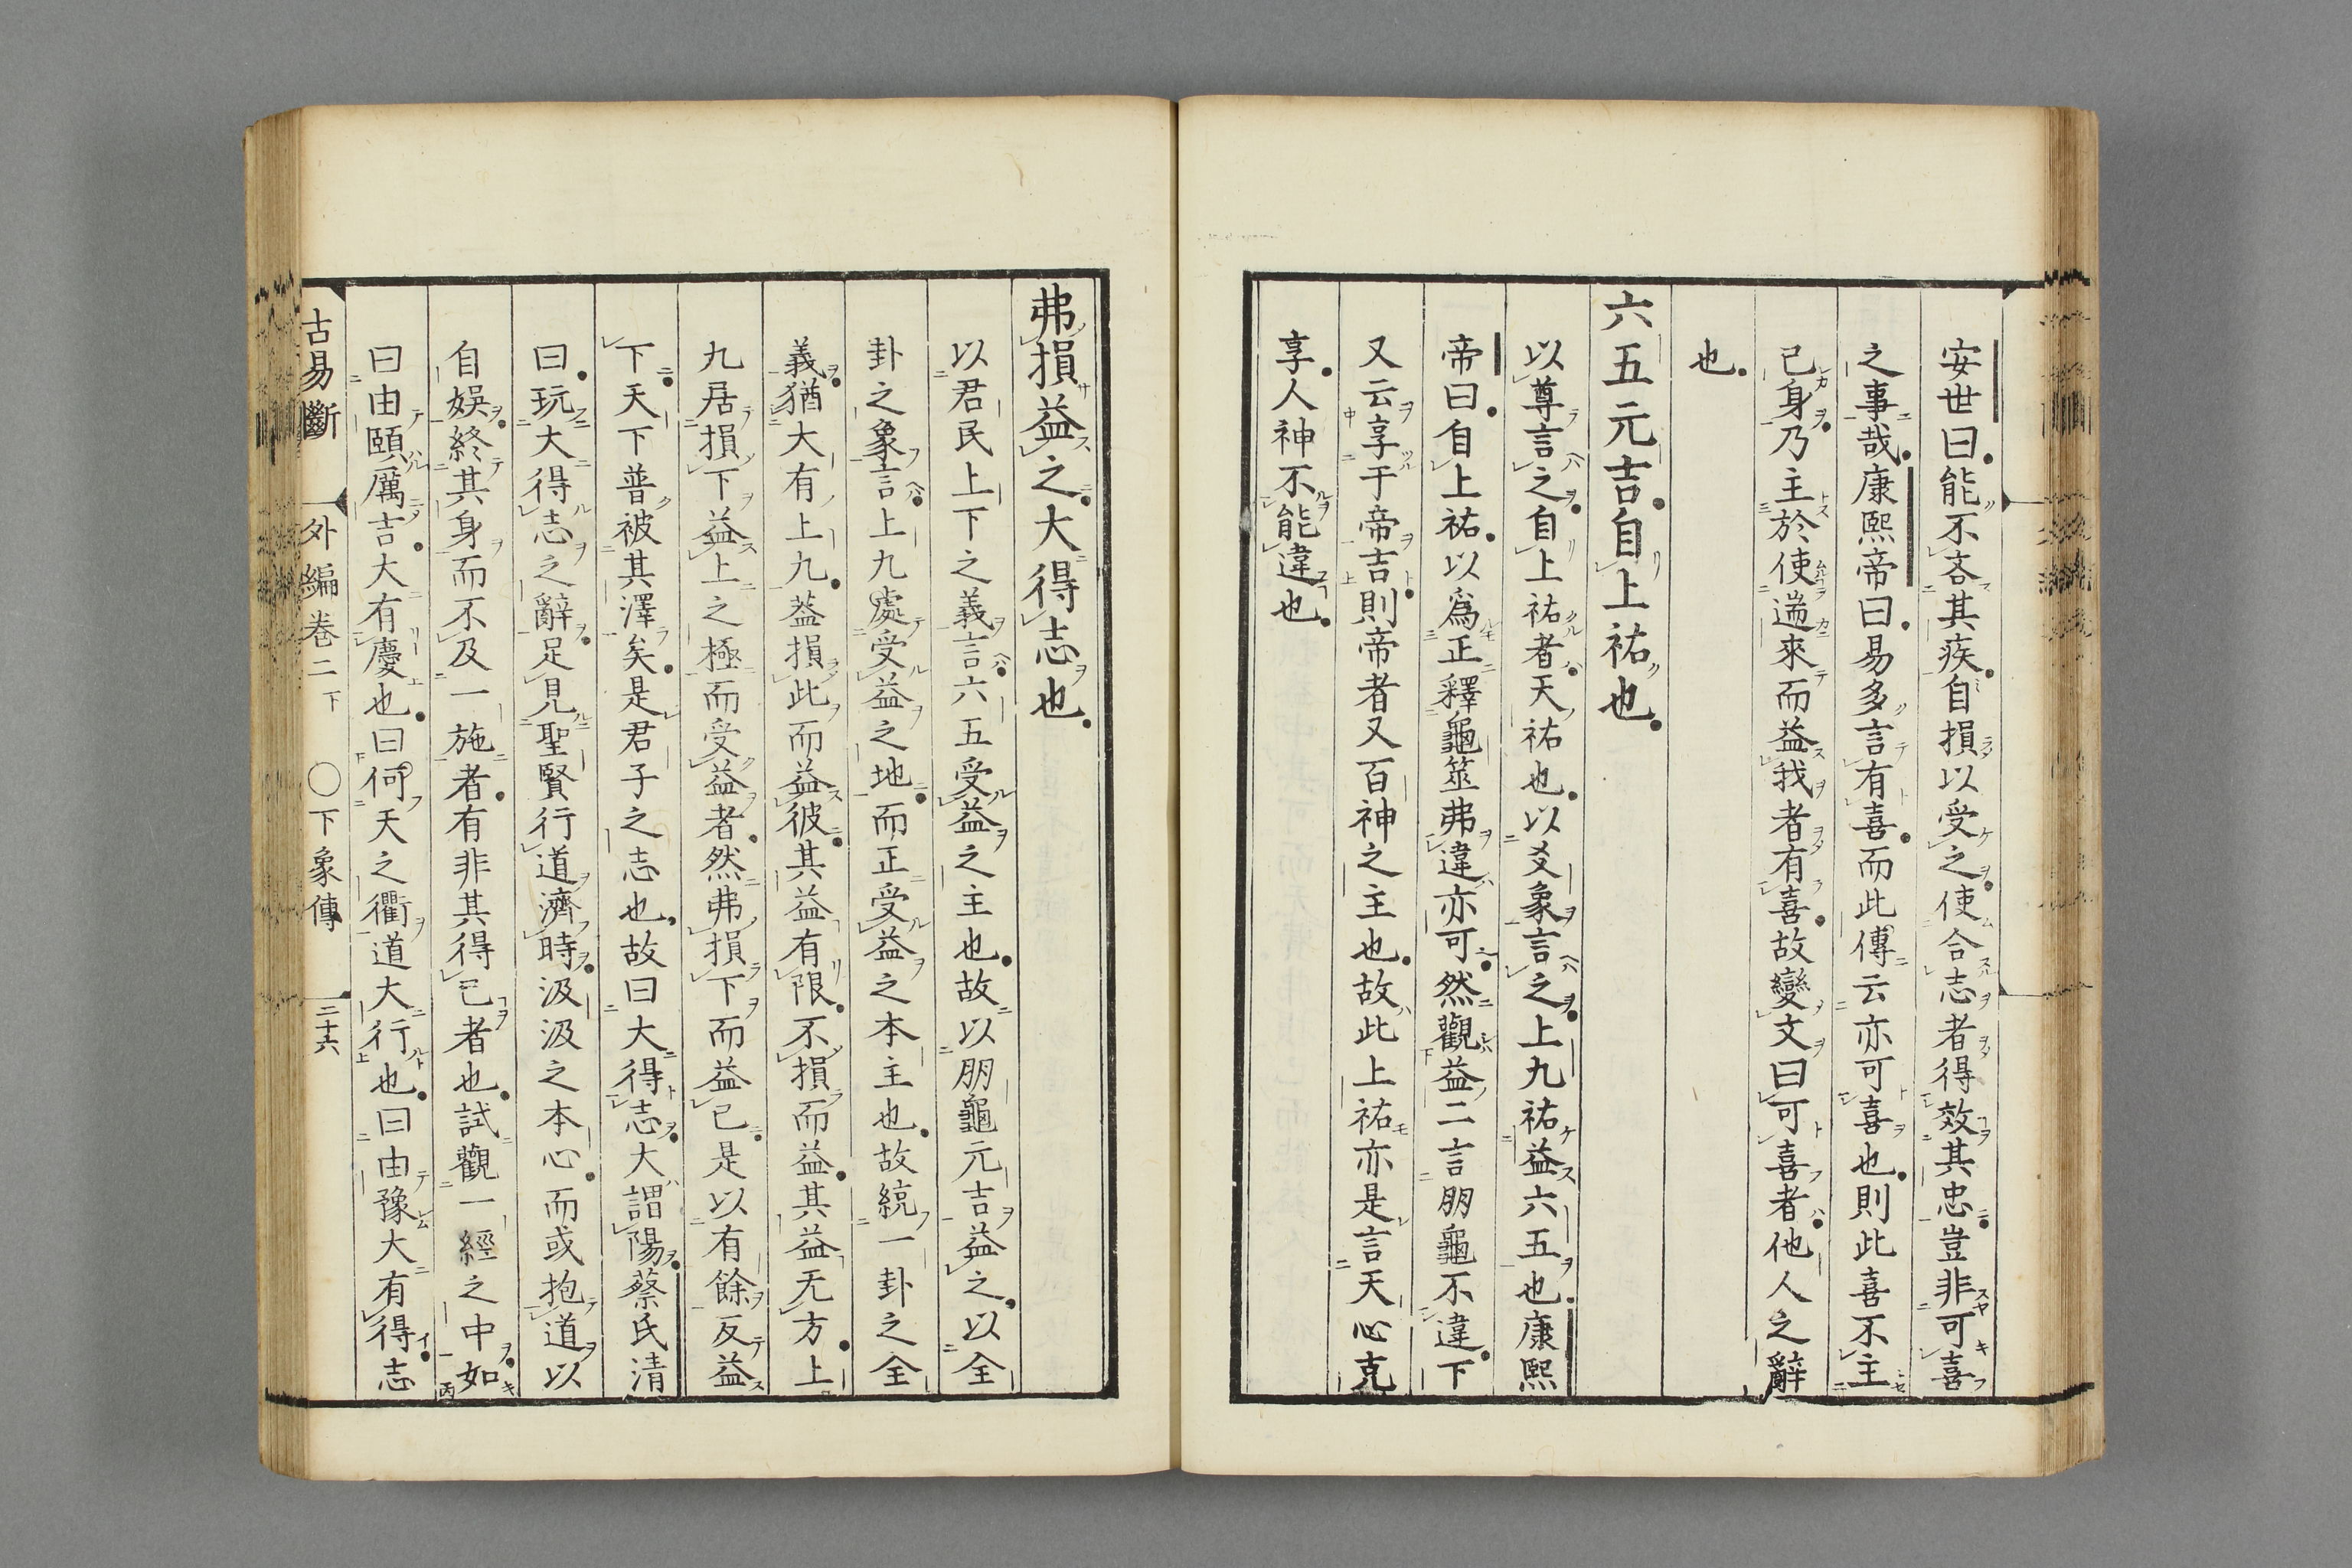 安世曰能不吝其疾自損以受之使合志者得效其忠豈非可喜
之事哉康熙帝曰易多言有喜而此傳云亦可喜也則此喜不主
己身乃主於使遄來而益我者有喜故變文曰可喜者他人之辭
也
六五元吉自上祐也
以尊言之自上祐者天祐也以爻象言之上九祐益六五也康熙
帝曰自上祐以爲正釋龜筮弗違亦可然觀益二言朋龜不違下
又云享于帝吉則帝者又百神之主也故此上祐亦是言天心克
享人神不能違也
弗損益之大得志也
以君民上下之義言六五受益之主也故以朋龜元吉益之以全
卦之象言上九處受益之地而正受益之本主也故統一卦之全
義猶大有上九葢損此而益彼其益有限不損而益其益无方上
九居損下益上之極而受益者然弗損下而益己是以有餘反益
下天下普被其澤矣是君子之志也故曰大得志大謂陽蔡氏清
曰玩大得志之辭足見聖賢行道濟時汲汲之本心而或抱道以
自娛終其身而不及一施者有非其得已者也試觀一經之中如
曰由頤厲吉大有慶也曰何天之衢道大行也曰由豫大有得志
古易斷 外編卷二下 ○下象傳 二十六